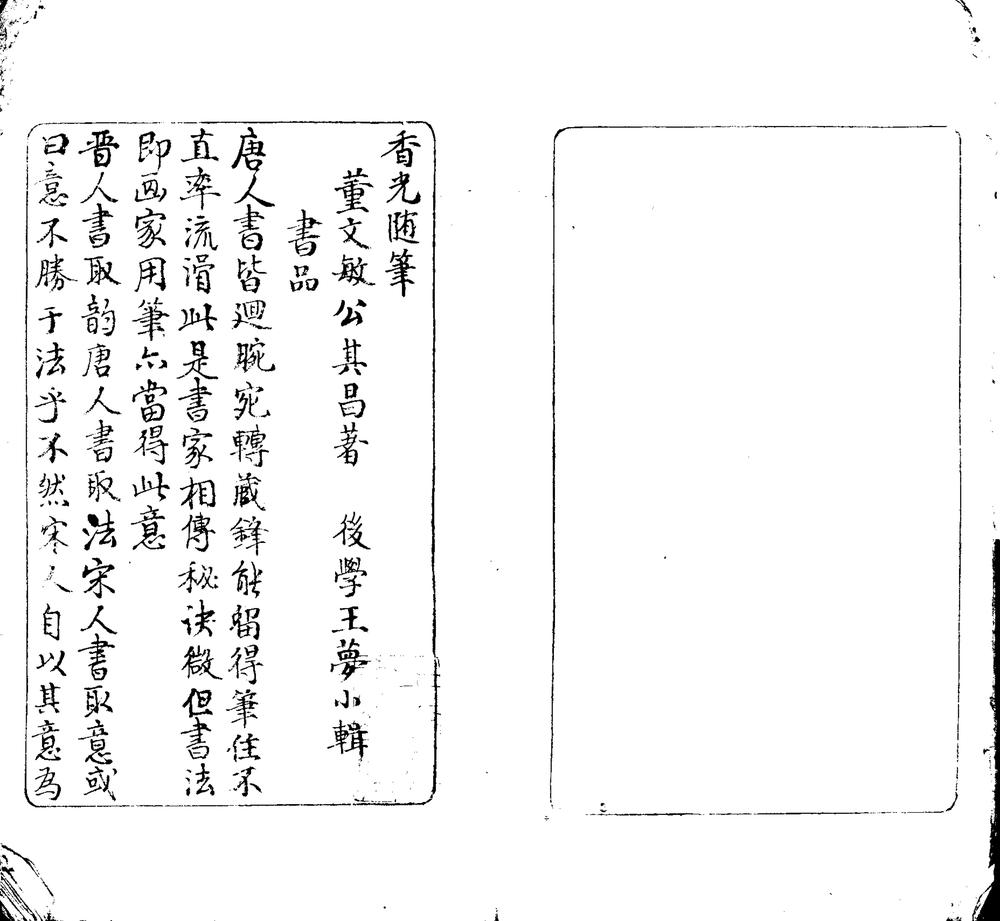 香光随筆
董文敏公其昌著 後學王夢小輯
書品
唐人書皆廻腕宛轉蔵鋒能留得筆住不
直率流滑此是書家相傳秘诀微但書法
即画家用筆亦當得此意
晋人書取韵唐人書取法宋人書取意或
曰意不勝于法乎不然宋人自以其意為